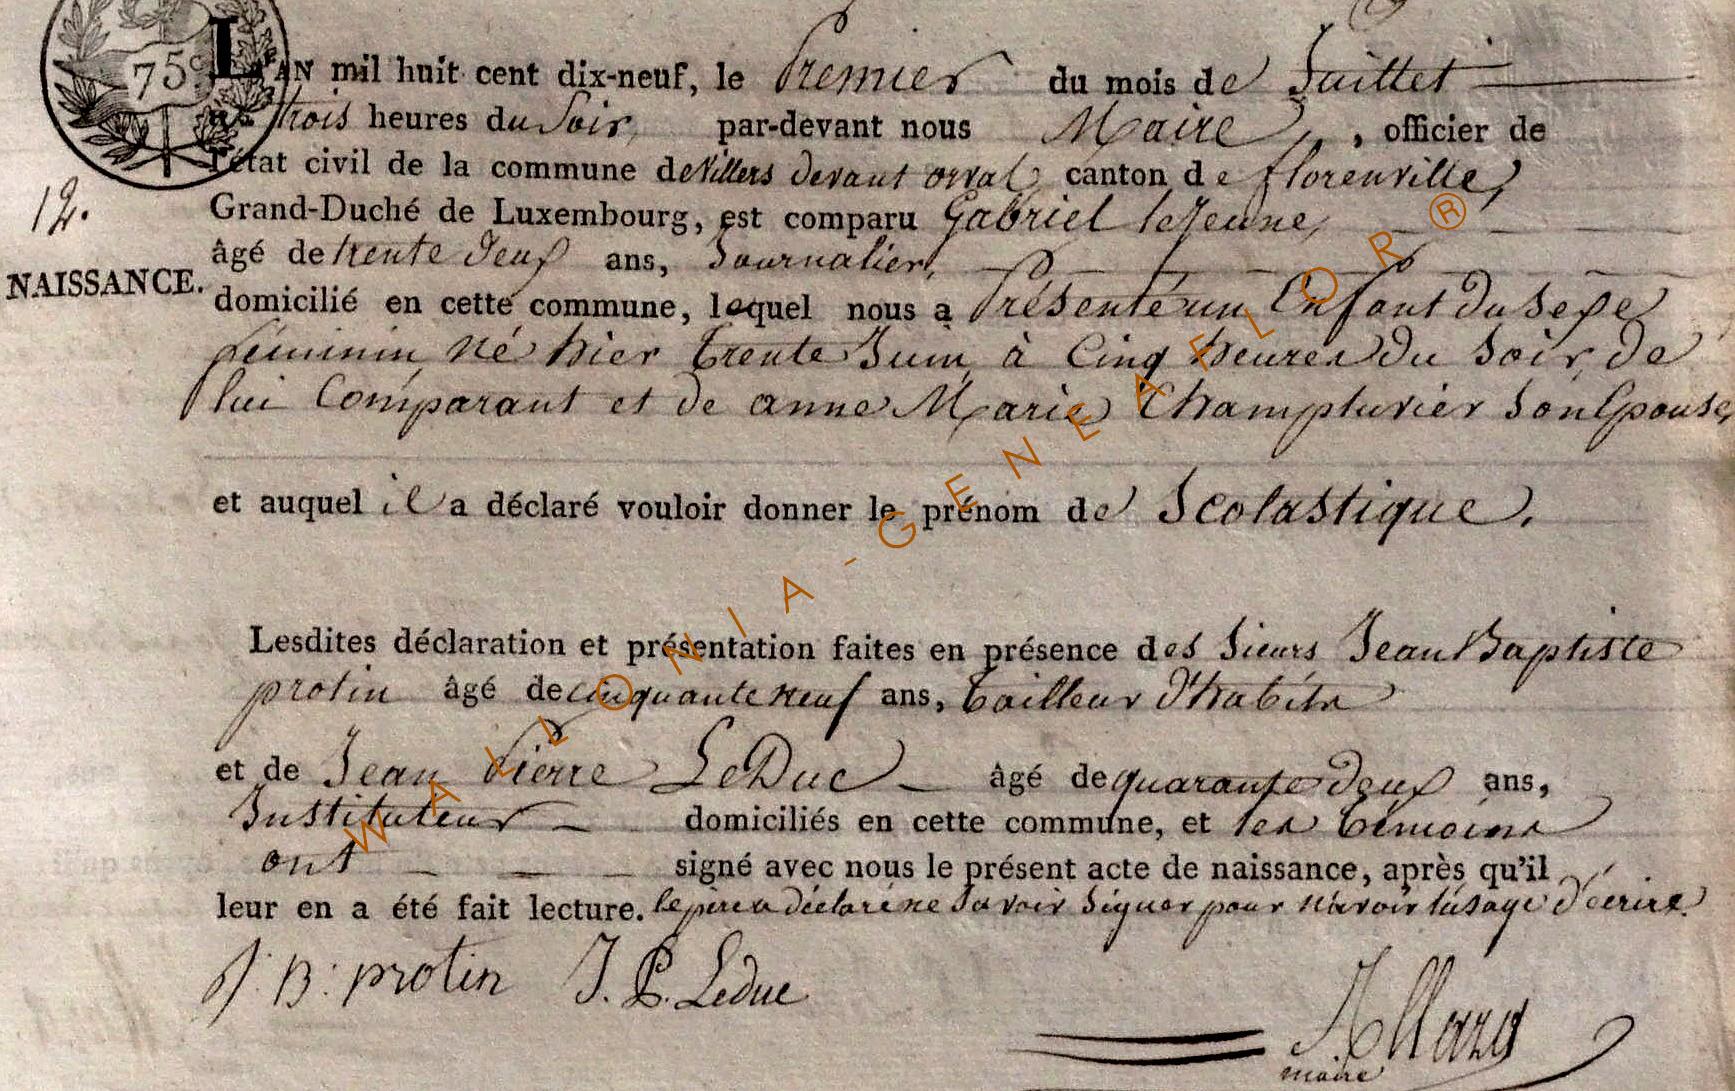 75c
L'AN mil huit cent dix-neuf, le Premier du mois de Juillet
à trois heures du Soir, par-devant nous Maire, officier de
l'état civil de la commune de Villers devant orval, canton de florenville,
12.
Grand-Duché de Luxembourg, est comparu Gabriel leJeune,
âgé de trente deux ans, Journalier,
NAISSANCE.
domicilié en cette commune, lequel nous a Présenté un Enfant du Sexe
féminin né hier trente Juin, à Cinq heures du Soir, de
lui Comparant et de anne Marie Champluvier Son Epouse,
et auquel il a déclaré vouloir donner le prénom de Scolastique.
Lesdites déclaration et présentation faites en présence des Sieurs Jean Baptiste
protin âgé de cinquante neuf ans, tailleur d'habits
et de Jean Pierre LeDuc âgé de quarante deux ans,
Instituteur domiciliés en cette commune, et les témoins
ont signé avec nous le présent acte de naissance, après qu'il
leur en a été fait lecture. le père a déclaré ne Savoir Signer pour n'avoir l'usage d'écrire.
J: B: protin J. P. Leduc
Allard
maire
WALLONIA-GENEAFLOR®